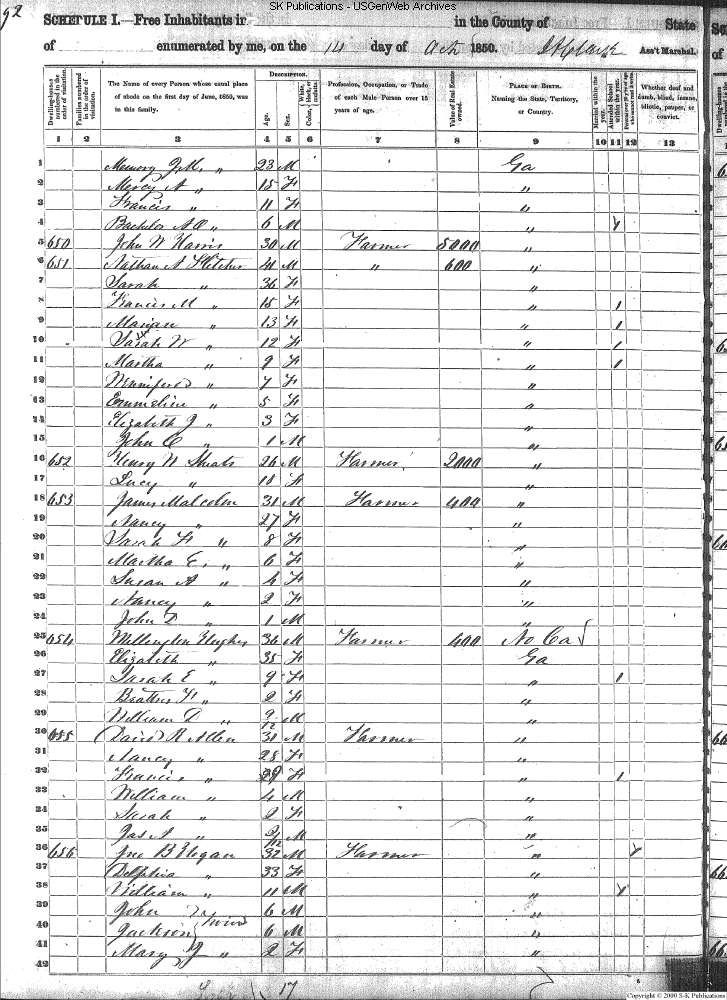 SK Publications - USGenWeb Archives
92
SCHEDULE I.—Free Inhabitants in in the County of State
of enumerated by me, on the 14 day of Oct 1850. Ass't Marshal.
Dwelling-houses numbered in the order of visitation.
Families numbered in the order of visitation.
The Name of every Person whose usual place of abode on the first day of June, 1850, was in this family.
Description.
Age.
Sex.
White, Color, black, or mulatto.
Profession, Occupation, or Trade of each Male Person over 15 years of age.
Value of Real Estate owned.
Place of Birth. Naming the State, Territory, or Country.
Married within the year.
Attended School within the year.
Whether deaf and dumb, blind, insane, idiotic, pauper, or convict.
1 2 3 4 5 6 7 8 9 10 11 12 13
1 Memory J.M. " 23 M Ga
2 Mercy A " 15 F "
3 Francis " 11 F "
4 Bachelor A O " 6 M "
5 650 John W Harris 30 M Farmer 5000 "
6 651 Nathan A Fletcher 41 M " 600 "
7 Sarah " 36 F "
8 Francis M " 15 F " 1
9 Marian " 13 F " 1
10 Sarah W " 12 F " 1
11 Martha " 9 F " 1
12 Winniford " 7 F "
13 Emmeline " 5 F "
14 Elizabeth J " 3 F "
15 John C " 1 M "
16 652 Henry W Sheats 26 M Farmer 2000 "
17 Lucy " 18 F "
18 653 James Malcolm 31 M Farmer 400 "
19 Nancy " 27 F "
20 Sarah F " 8 F "
21 Martha E " 6 F "
22 Susan A " 4 F "
23 Nancy " 2 F "
24 John D " 1 M "
25 654 Willington Hughes 36 M Farmer 400 No Ca
26 Elizabeth " 35 F Ga
27 Sarah E " 9 F " 1
28 F " 2 F "
29 William D " 9/12 M "
30 655 David R Allen 31 M Farmer "
31 Nancy " 28 F "
32 Francis " F " 1
33 William " 4 M "
34 Sarah " 2 F "
35 Jas A " 2/12 M "
36 656 Jno B Hogan 32 M Farmer "
37 Delphia " 33 F "
38 William " 11 M "
39 John } Twins 6 M "
40 Jackson } 6 M "
41 Mary J " 2 F "
42
17
Copyright © 2000 S-K Publications